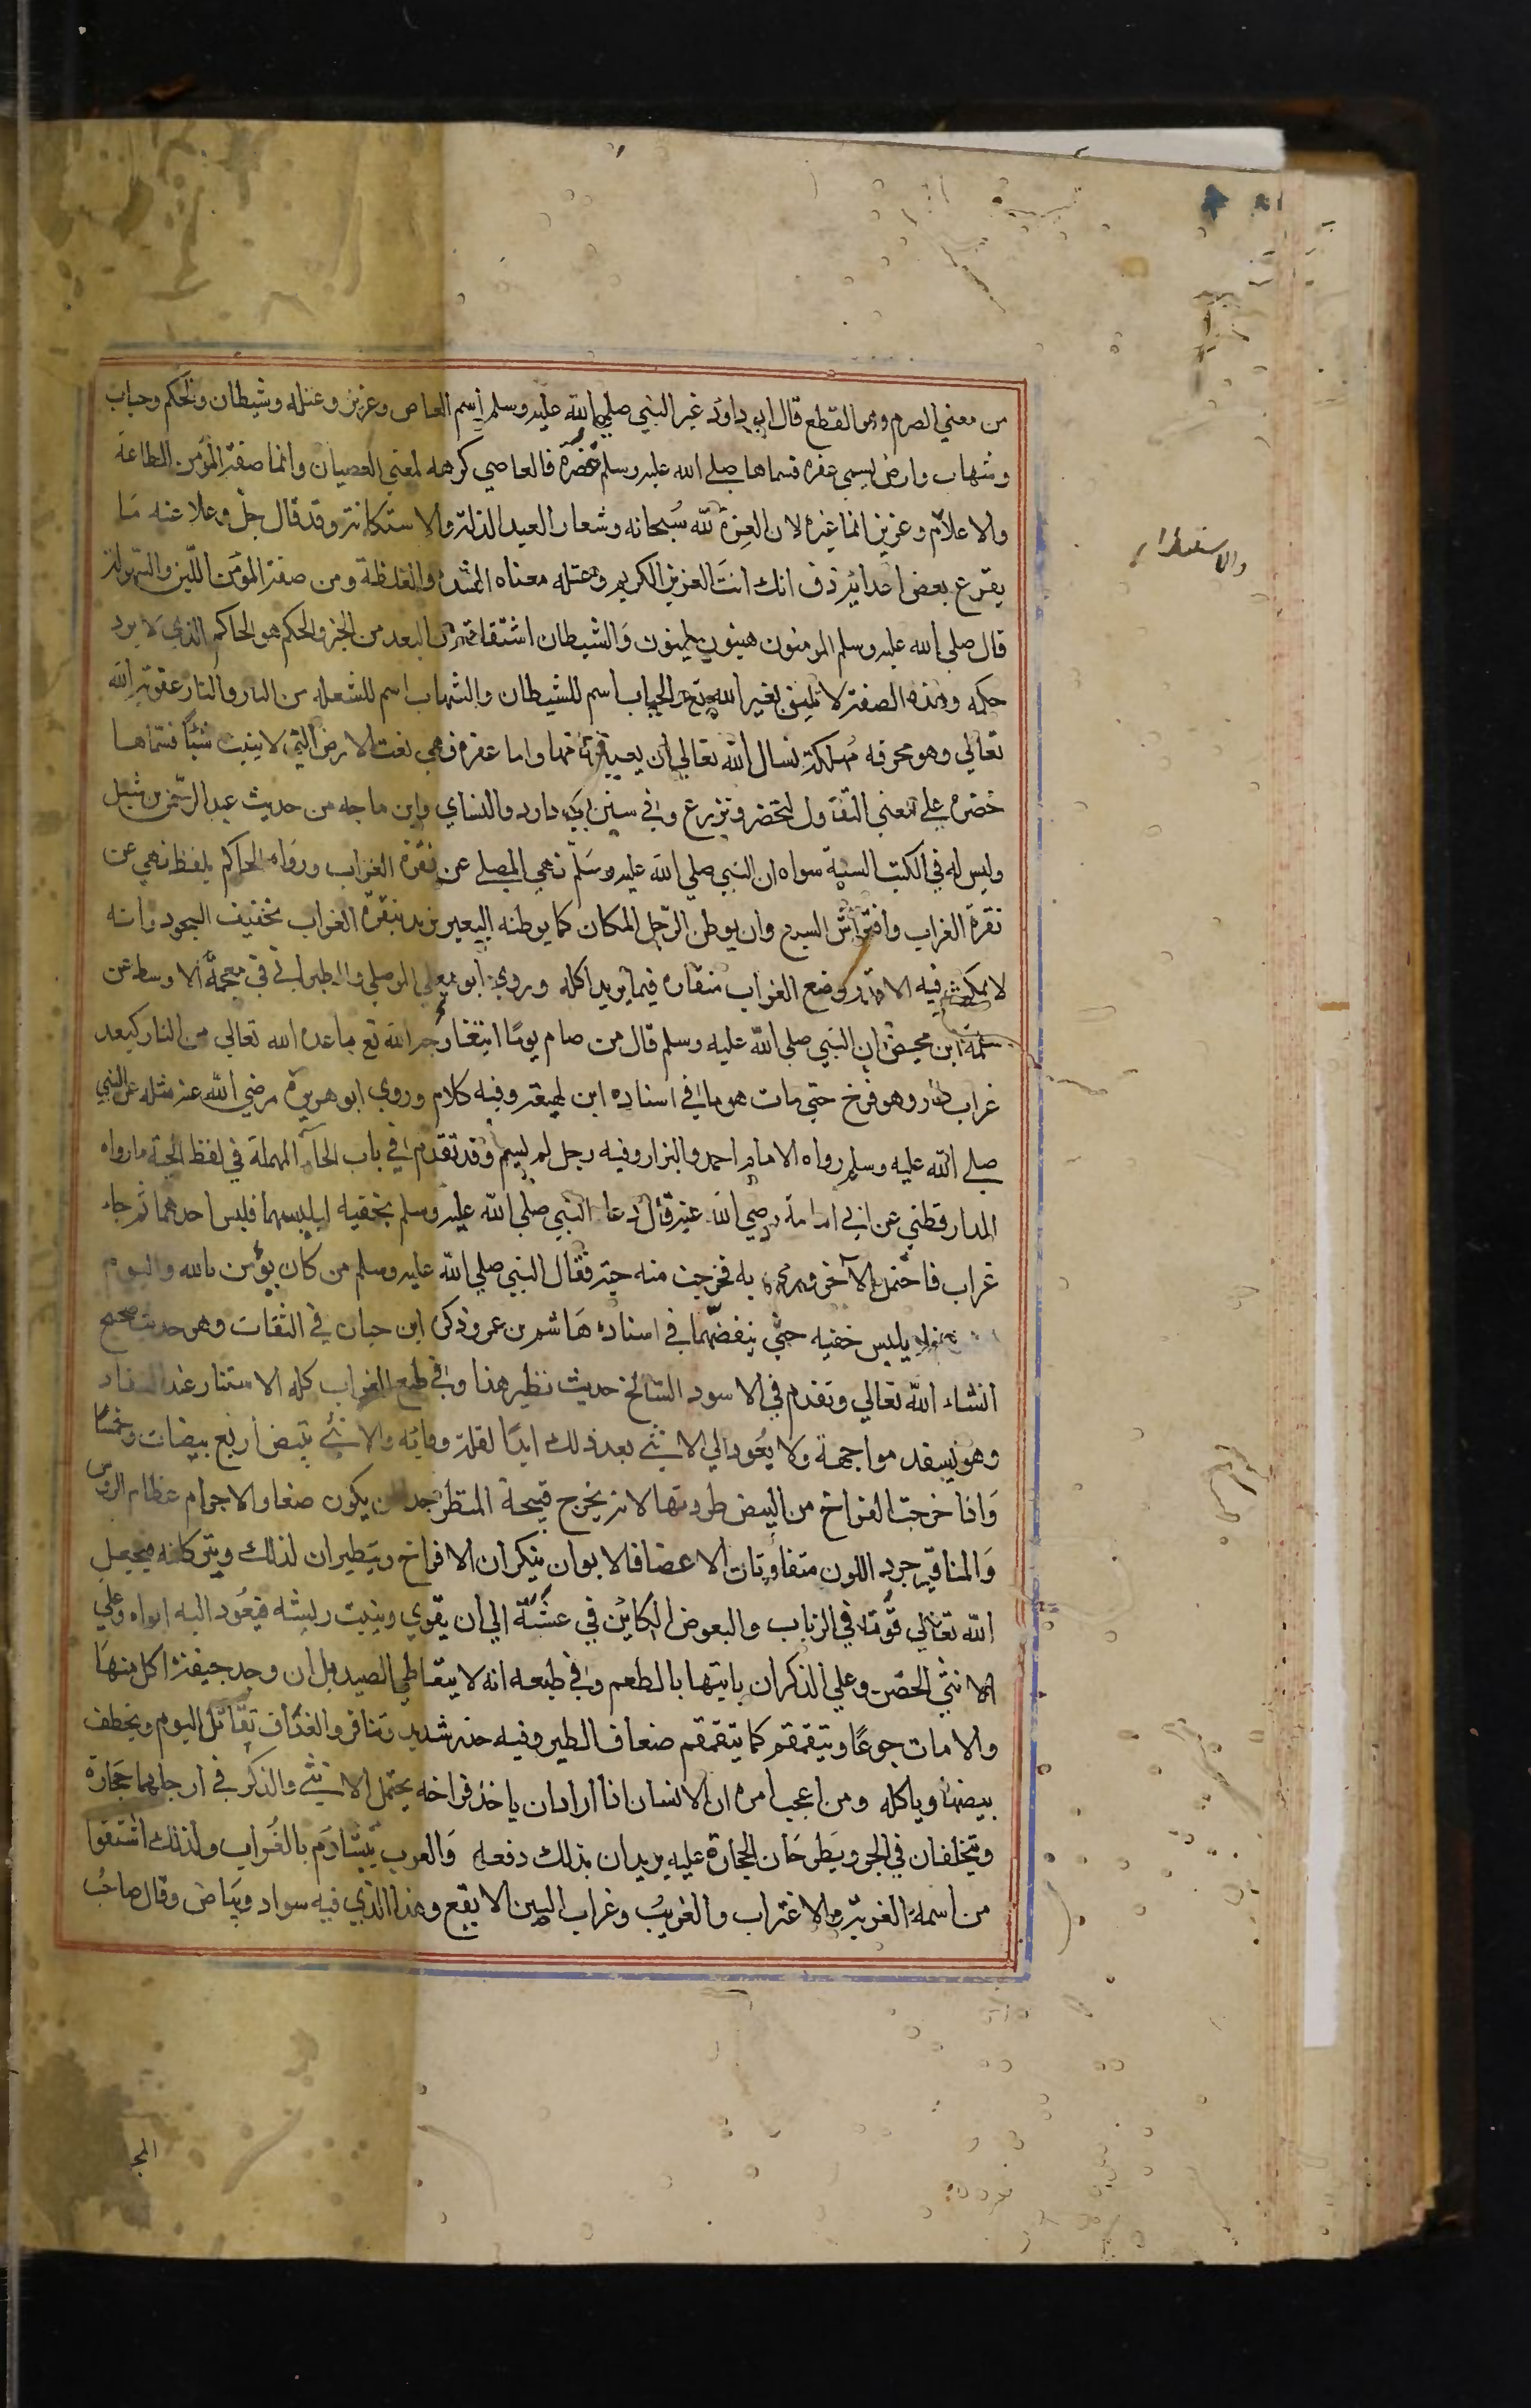 من معني الصرم وهو القطع قال ابو داود غير النبي صلي الله عليه وسلم اسم العاص وعزيز وعتله وشيطان والحكم وحباب
وشهاب وارض تسمي عفره فسماها صلے الله عليه وسلم خضرة فالعاصي كرهه لمعني العصيان وانما صفة المؤمن الطاعة
والاعلام وعزيز انما غيره لان العزة لله سُبحانه وشعار العبد الذلة والاستكانة وقد قال جل وعلا عنه مَا
يقرع بعض اعدائه ذق انك انتَ العزيز الكريم وعتله معناه الشدة والغلظة ومن صفة المؤمن اللّين والسّهولة
قال صلي الله عليه وسلم المومنون هينون لينون وَالشيطان اشتقاقه من البعد من الخير والحكم هو الحاكم الذي لا يرد
حكمه وهذه الصفة لا تليق بغير الله تع والحباب اسم للشيطان والشهاب اسم للشعلة من النار والنار عقوبة الله
تعالي وهو محرقه مُهلكة نسال الله تعالي ان يعيذنا منها واما عفرة فهي نعت الارض التي لا ينبت شيئًا فسمّاها
خضرة علي معني التفاول لتخضر وتزرع وفي سنن ابي داود والنساي وابن ماجه من حديث عبد الرّحمن بن شبل
وليس له في الكتب الستة سواه ان النبي صلي الله عليه وسَلّم نهي المصلے عن نقرة الغراب ورواه الحاكم بلفظ نهي عن
نقرة الغراب وافتراش السبع وان يوطن الرّجل المكان كما يوطنه البعير يريد بنقرة الغراب تخفيف السجود وانه
لا يمكث فيه الا قدر وضع الغراب منقاره فيما يريد اكله وروي ابو يعلي الموصلي والطبراني في معجمه الاوسط عن
سلمة ابن محيصن ان النبي صلي الله عليه وسلم قال من صام يومًا ابتغا وجه الله تع باعده الله تعالي من النار كبعد
غراب طار وهو فرخ حتي مات هرما في اسناده ابن لهيعة وفيه كلام وروي ابو هريرة رضي الله عنه مثله عن النبي
صلے الله عليه وسلم رواه الامام احمد والبزار وفيه رجل لم يسم وقد تقدم في باب الحآء المهملة في لفظ الحية ما رواه
الدارقطني عن ابي امامة رضي الله عنه قال دعا النبي صلي الله عليه وسلم بخفيه ليلبسهما فلبس احدهما ثم جاء
غراب فاحتمل الآخر ورمي به فخرجت منه حية فقال النبي صلي الله عليه وسلم من كان يؤمن بالله واليوم
فلا يلبس خفيه حتّي ينفضهما في اسناده هَاشم بن عمر وذكره ابن حبان في الثقات وهو حديث صحيح
انشاء الله تعالي وتقدم في الاسود السّالخ حديث نظير هذا وفي طبع الغراب كله الاستتار عند السفاد
وهو يسفد مواجهة ولا يعُود الي الانثے بعد ذلك ابدًا لقلة وفائه والانثے تبيض اربع بيضات وخمسًا
وَاذا خرجت الفراخ من البيض طردتها لانه يخرج قبيحة المنظر جدا يكون صغار الاجرام عظام الروس
وَالمناقير جرد اللون متفاوتات الاعضا فالابوان ينكران الافراخ ويَطيران لذلك ويتركانه فيجعل
الله تعَالي قُوته في الذباب والبعوض الكائن في عشّه الي ان يقوي وينبت ريشه فيعُود اليه ابواه وعلي
الانثي الحضن وعلي الذكر ان ياتيها بالطعم وفي طبعه انه لا يتعاطي الصيد بل ان وجد جيفة اكل منهَا
والا مات جوعًا ويتقمقم كما يتقمقم ضعاف الطير وفيه حذر شديد وتنافر والغداف تقاتل البوم ويخطف
بيضها وياكله ومن اعجب امره ان الانسان اذا اراد ان ياخذ فراخه يحتمل الانثے والذكر في ارجلهما حجارة
ويتحلقان في الجو ويَطرحَان الحجارة عليه يريدان بذلك دفعه وَالعرب يتشاوم بالغُراب ولذلك اشتقوا
من اسمه الغربة والاغتراب والغريب وغراب البين الابقع وهذا الذي فيه سواد وبَياض وقال صَاحب
والاستسلام
المجا